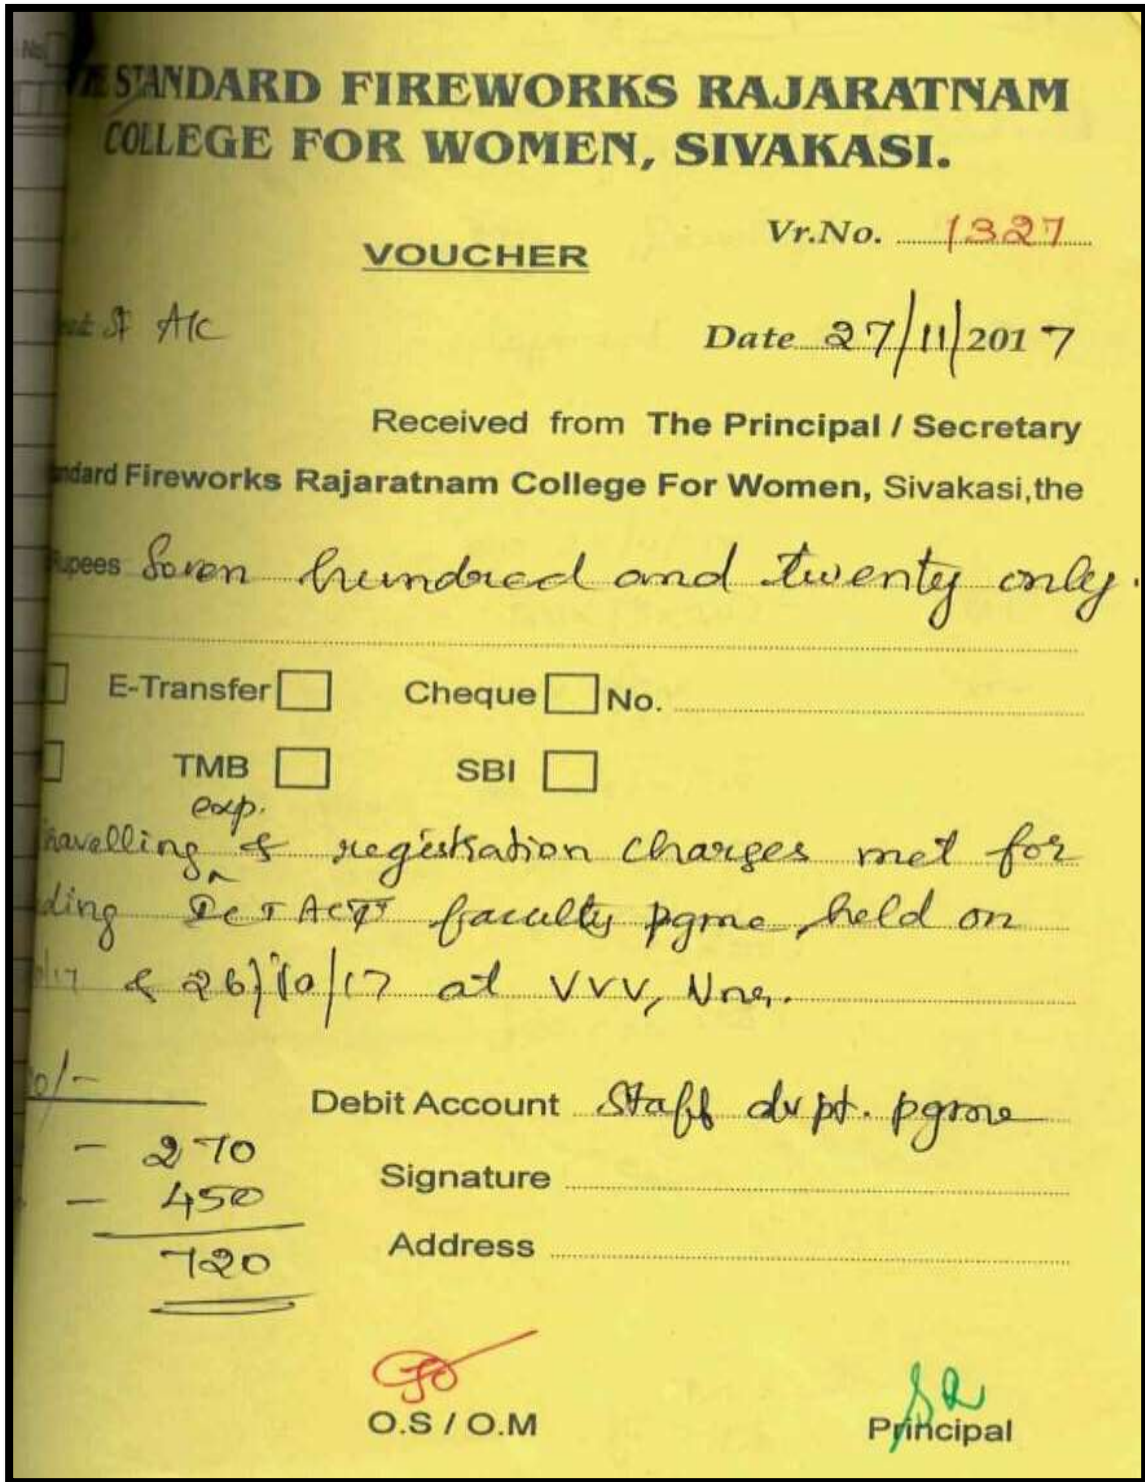 STANDARD FIREWORKS RAJARATNAM
COLLEGE FOR WOMEN, SIVAKASI.
Vr.No. 1327
VOUCHER
A/C
Date 27/11/2017
Received from The Principal / Secretary
Fireworks Rajaratnam College For Women, Sivakasi,the
Seven hundred and twenty only.
E-Transfer Cheque No.
TMB SBI
exp.
& registration charges met for
faculty pgme, held on
& 26/10/17 at VVV,
Debit Account Staff dvpt. pgme
- 270
Signature
- 450
Address
720
O.S / O.M
Principal